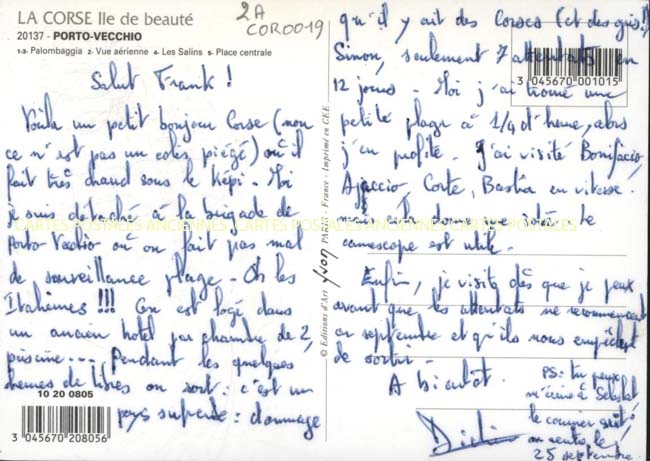 LA CORSE Ile de beauté
20137 - PORTO-VECCHIO
1-3- Palombaggia 2- Vue aérienne 4- Les Salins 5- Place centrale
2A
COR0019
Salut Frank !
Voilà un petit bonjour Corse (non
ce n'est pas un colis piégé) où il
fait très chaud sous le képi - Moi
je suis détaché à la brigade de
Porto-Vecchio où on fait pas mal
de surveillance plage - Oh les
Italiennes !!! On est logé dans
un ancien hotel par chambre de 2,
piscine... Pendant les quelques
heures de libres on sort. C'est un
pays superbe : dommage
10 20 0805
3 045670 208056
© Editions d'Art yvon PARIS - France - Imprimé en CEE
qu'il y ait des Corses (et des gris !)
Sinon, seulement 7 attentats en
12 jours - Moi j'ai trouvé une
petite plage à 1/4 d'heure, alors
j'en profite - J'ai visité Bonifacio,
Ajaccio, Corte, Bastia en vitesse.
le
camescope est utile.
Enfin, je visite dès que je peux
avant que les attentats ne recommencent
en septembre et qu'ils nous empêchent
de sortir -
A bientôt.
3 045670 001015
PS: tu peux
m'écrire à
le courrier suit,
on rentre le
25 septembre
CARTES POSTALES ANCIENNES CARTES POSTALES ANCIENNES CARTES POSTALES